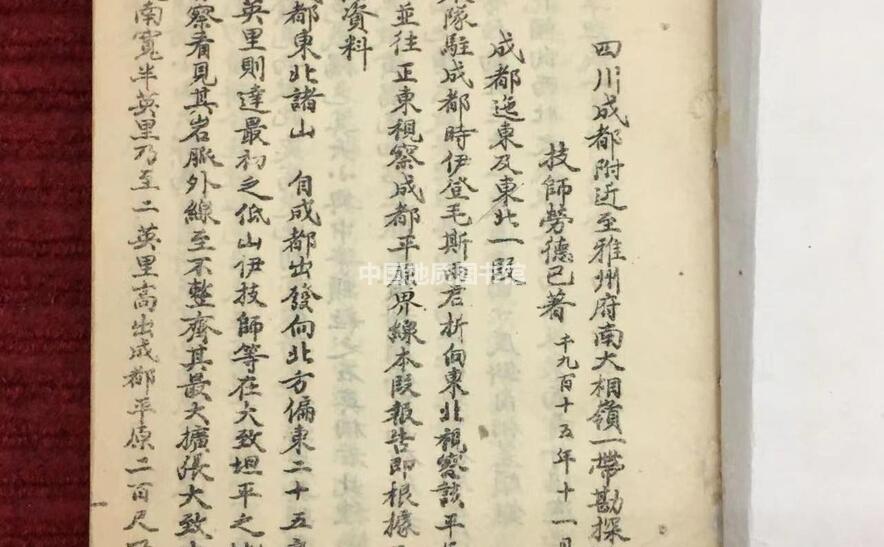 四川成都附近至雅州府南大相嶺一帶勘探
技師勞德己著 千九百十五年十一月
成都迤東及東北一段
隊駐成都時伊登毛斯兩君折向東北視察該平
並往正東視察成都平原界線本段報告即根據
資料
成都東北諸山 自成都出發向北方偏東二十五
英里則達最初之低山伊技師等在大致坦平之
察看見其岩脈外線至不整齊其最大擴張大致
南寬半英里乃至二英里高出成都平原二百尺
中国地质图书馆